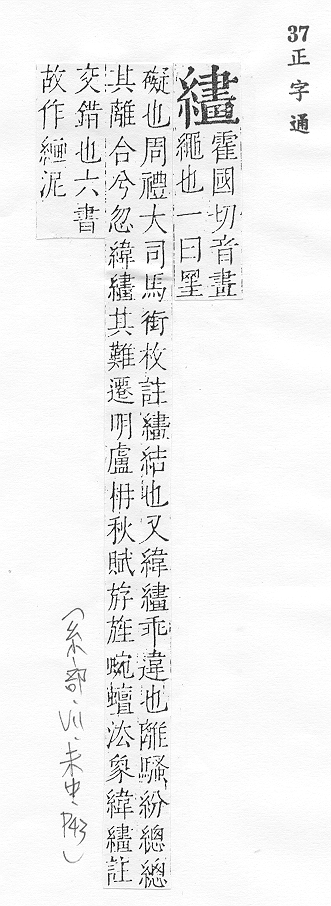 37 正字通
繣
霍國切音畫
繩也一曰罣
礙也周禮大司馬銜枚註繣結也又緯繣乖違也離騷紛總總
其離合兮忽緯繣其難遷明盧柟秋賦斿旌蜿蟺象緯繣註
交錯也六書
故作泥
(糸部·VII·未中·P43)